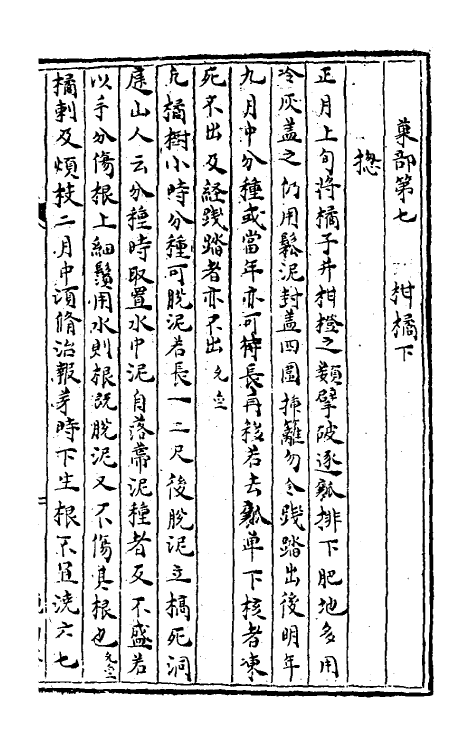 菓部第七　柑橘下
揔
正月上旬将橘子并柑橙之類擘破逐瓤排下肥地多用
冷灰盖之仍用鬆泥封盖四圍挿籬勿令踐踏出後明年
九月中分種或當年亦可待長再移若去瓤单下核者凍
死不出及経踐踏者亦不出
凡橘樹小時分種可脫泥若長一二尺後脫泥立槁死洞
庭山人云分種時取置水中泥自落帶泥種者反不盛若
以手分傷根上細鬚用水則根既脫泥又不傷其根也
橘刺及煩枝二月中湏脩治報芽時下生根不宜澆六七